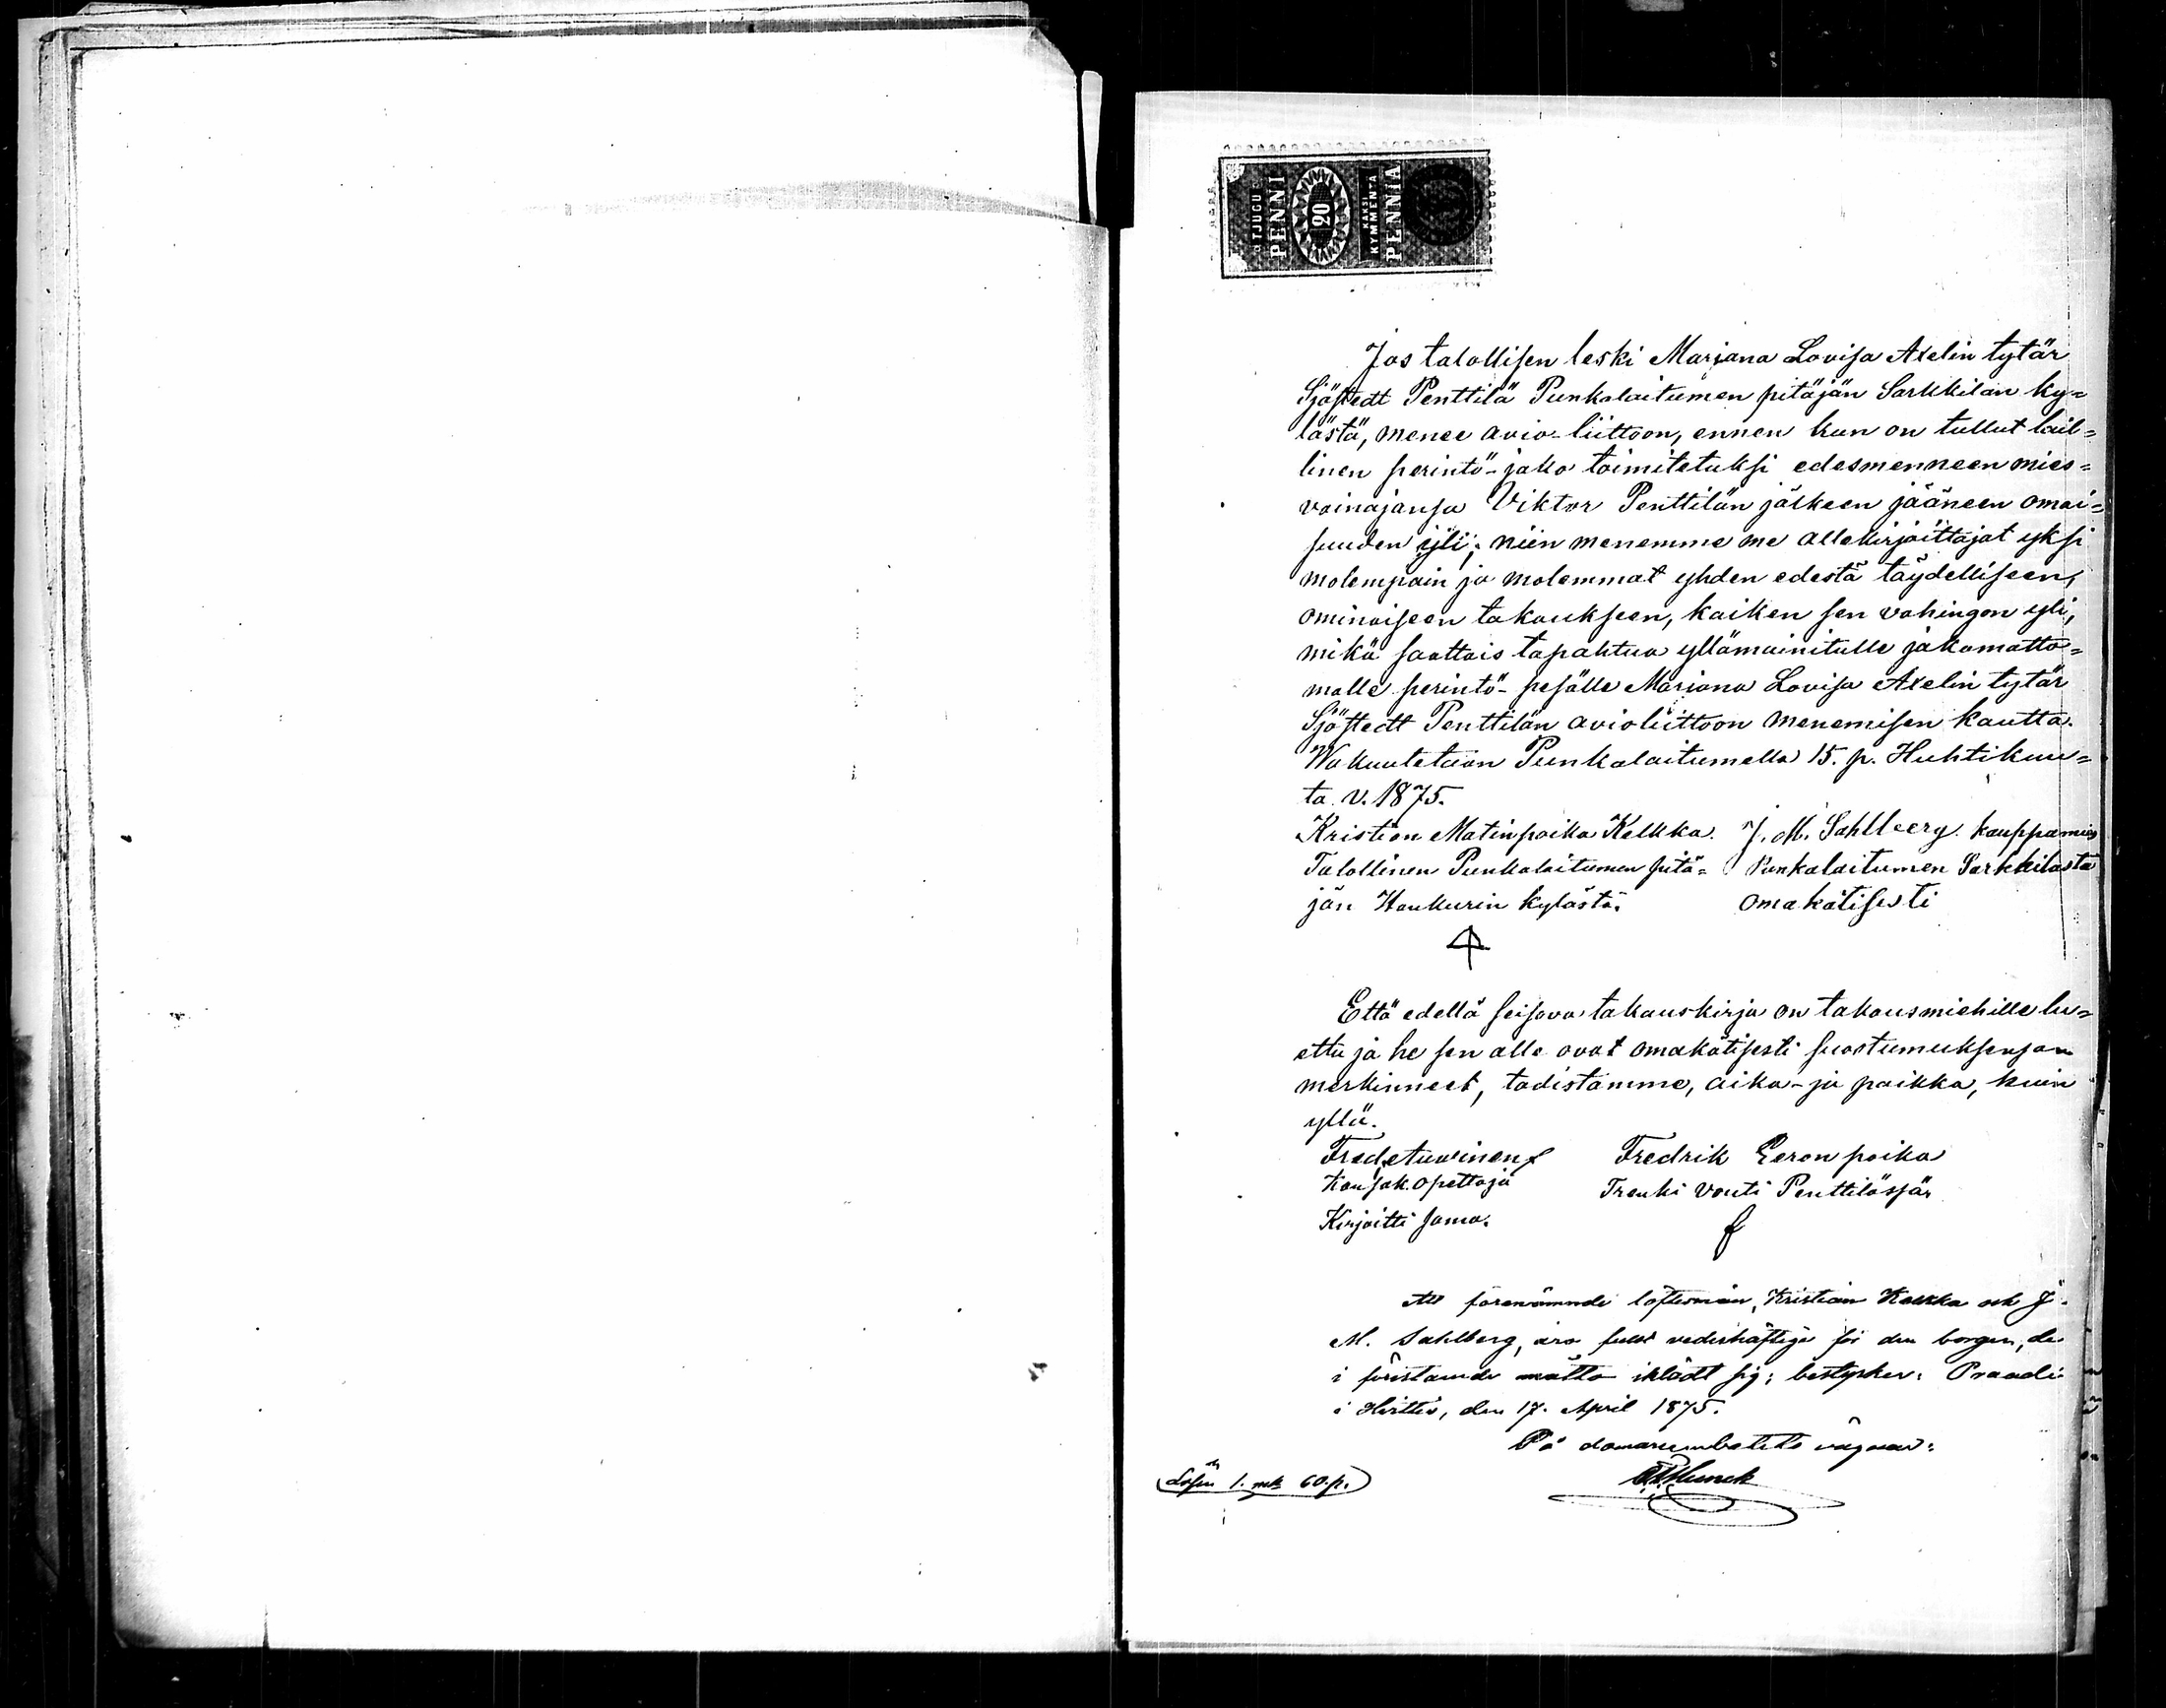 TJUGU
PENNI
20
KAKSI
KYMMENTÄ
PENNIÄ
Jos talollisen leski Mariana Lovisa Axelin tytär
Sjöstedt Penttilä Punkalaitumen pitäjän Sarkkilan ky=
lästä, menee avio-liittoon, ennen kun on tullut lail=
linen perintö-jako toimitetuksi edesmenneen mies=
vainajansa Viktor Penttilän jälkeen jääneen omai=
suuden yli; niin menemme me allekirjoittajat yksi
molempain ja molemmat yhden edestä täydelliseen,
ominaiseen takaukseen, kaiken sen vahingon yli,
mikä saattais tapahtua yllämainitulle jakamatto=
malle perintö-pesälle Mariana Lovisa Axelin tytär
Sjöstedt Penttilän avioliittoon menemisen kautta.
Wakuutetaan Punkalaitumella 15. p. Huhtikuu=
ta v. 1875.
Kristian Matinpoika Kelkka. J. M. Sahlberg. kauppamies
Talollinen Punkalaitumen pitä= Punkalaitumen Sarkkilasta
jän Haukurin kylästä. omakätisesti
Että edellä seisova takauskirja on takausmiehille lu=
ettu ja he sen alle ovat omakätisesti suostumuksensa
merkinneet, todistamme, aika- ja paikka, kuin
yllä.
Fredrik Eeronpoika
Kansak. opettaja
Trenki Vouti Penttilässä
Kirjoitti sama.
Att förenämnde löftesmän, Kristian Kelkka och J.
M. Sahlberg, äro fullt vederhäftige för den borgen, de
i förestående måtto iklädt sig; bestyrker. Praadi
i Hvittis, den 17. April 1875.
På domareembetets vägnar:
Lösen 1. mk 60. p.